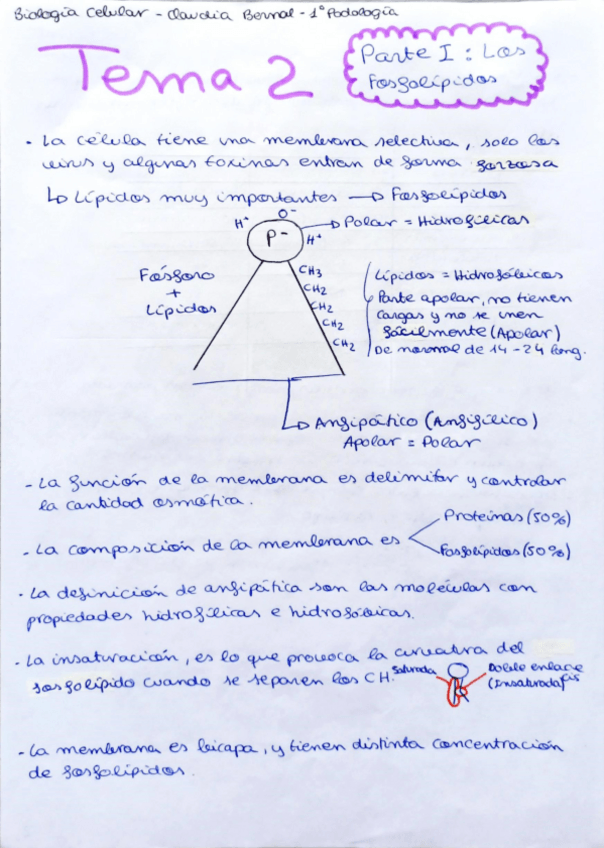 Biología Celular - Claudia Bernal - 1º Podología
Tema 2
Parte I: Los
Fosfolípidos
· La célula tiene una membrana selectiva, solo los
virus y algunas toxinas entran de forma forzosa
↳ Lípidos muy importantes → Fosfolípidos
O⁻
H⁺
P⁻
H⁺
→ Polar = Hidrofílicas
Fósforo
+
Lípidos
CH3
CH2
CH2
CH2
CH2
Lípidos = Hidrofóbicos
Parte apolar, no tienen
cargas y no se unen
fácilmente (Apolar)
De normal de 14-24 long.
↳ Anfipático (Anfifílico)
Apolar = Polar
- La función de la membrana es delimitar y controlar
la cantidad osmótica.
- La composición de la membrana es
Proteínas (50%)
Fosfolípidos (50%)
· La definición de anfipática son las moléculas con
propiedades hidrofílicas e hidrofóbicas.
· La insaturación, es lo que provoca la curvatura del
fosfolípido cuando se separen los CH.
Saturada
Doble enlace
cis
(Insaturada)
- La membrana es bicapa, y tienen distinta concentración
de fosfolípidos.